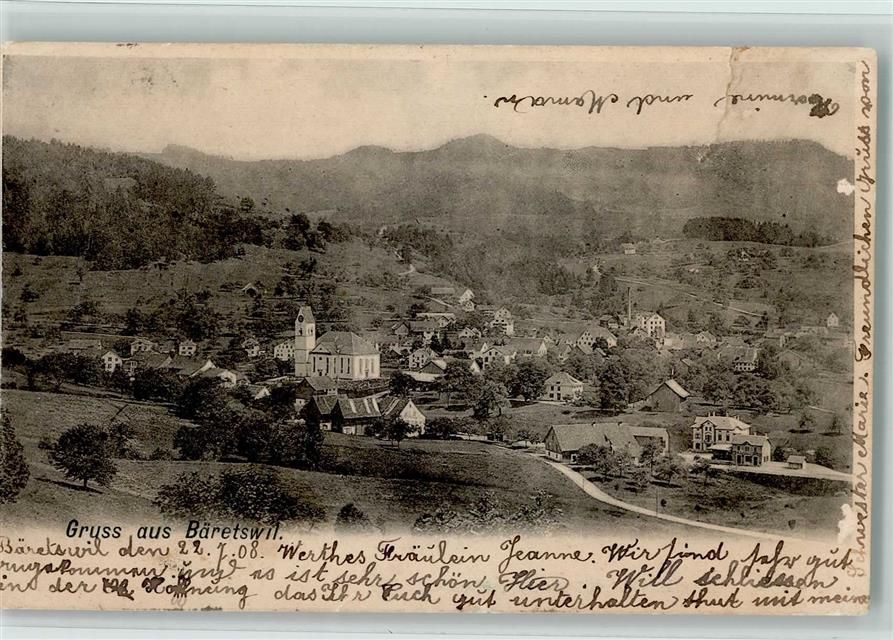 Gruss aus Bäretswil.
Bäretswil den 22.7.08. Werthes Fräulein Jeanne. Wir sind sehr gut
rugekommen und es ist sehr schön Hier. Will schliessen
in der Hoffnung das Ihr Euch gut unterhalten thut mit meine
Schwester Marie. Freundlichen Gruss von
Hermine und Maman